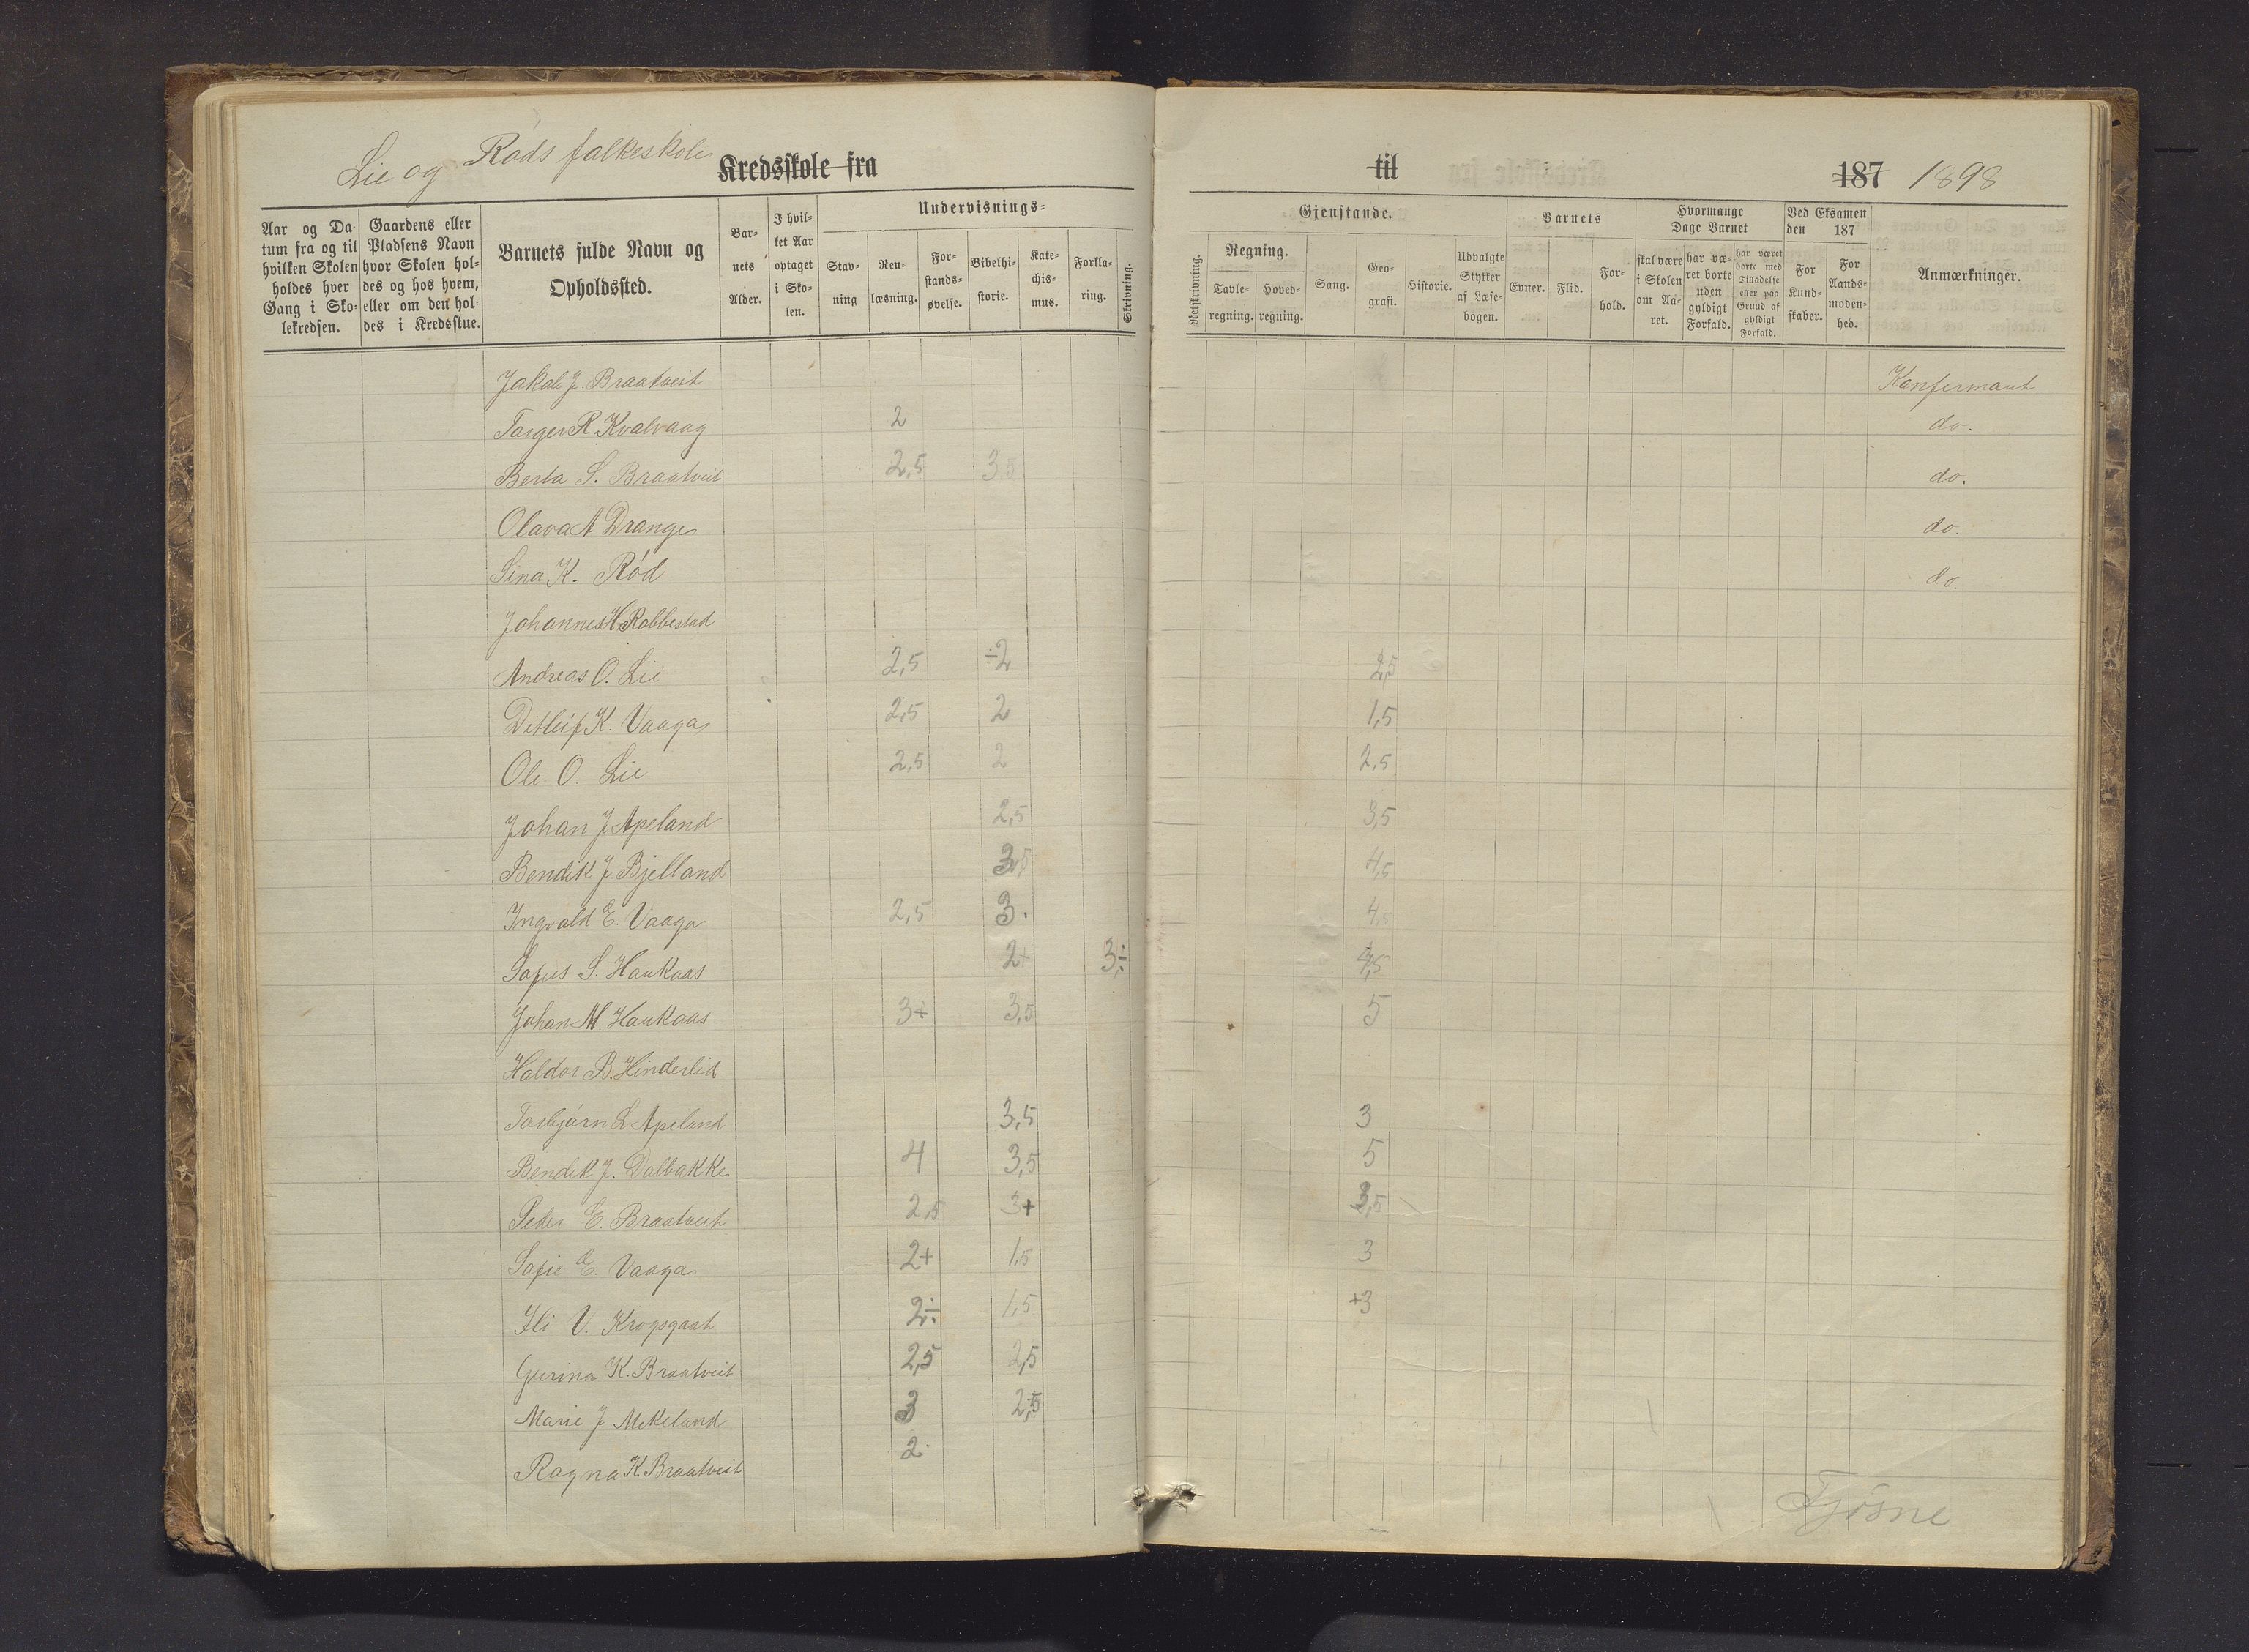 Lie og Röds folkeskole Kredsskole fra til 187 1898
Aar og Datum fra og til hvilken Skolen holdes hver Gang i Skolekredsen.
Gaardens eller Pladsens Navn hvor Skolen holdes og hos hvem, eller om den holdes i Kredsstue.
Barnets fulde Navn og Opholdssted.
Barnets Alder.
I hvilket Aar optaget i Skolen.
Undervisnings-
Stavning
Renlæsning.
Forstandsøvelse.
Bibelhistorie.
Katechismus.
Forklaring.
Skrivning.
Gjenstande.
Retskrivning.
Regning.
Tavleregning.
Hovedregning.
Sang.
Geografi.
Historie.
Udvalgte Stykker af Læsebogen.
Barnets
Evner.
Flid.
Forhold.
Hvormange Dage Barnet
skal være i Skolen om Aaret.
har været borte uden gyldigt Forfald.
har været borte med Tilladelse eller paa Grund af gyldigt Forfald.
Ved Eksamen den 187
For Kundskaber.
For Aandsmodenhed.
Anmærkninger.
Jakob J. Braatveit Konfermant
Torger R. Kvalvaag 2 do.
Berta S. Braatveit 2,5 3,5 do.
Olava A Drange do.
Sina K. Röd do.
Johannes H. Robbestad
Andreas O. Lie 2,5 ÷2 2,5
Ditleif K. Vaaga 2,5 2 1,5
Ole O. Lie 2,5 2 2,5
Johan J Apeland 2,5 3,5
Bendik J. Bjelland 3,5 4,5
Ingvald E. Vaaga 2,5 3. 4,5
Sofus S. Haukaas 2+ 3÷ 4,5
Johan M Haukaas 3+ 3,5 5
Haldor B. Hinderlid
Torbjörn L Apeland 3,5 3
Bendik J. Dalbakke 4 3,5 5
Peder E. Braatveit 2,5 3+ 3,5
Sofie E. Vaaga 2+ 1,5 3
V. Krogsgaat 2÷ 1,5 +3
Gurina K. Braatveit 2,5 2,5
Marie J Mekeland 3 2,5
Ragna K. Braatveit 2
Tjösne